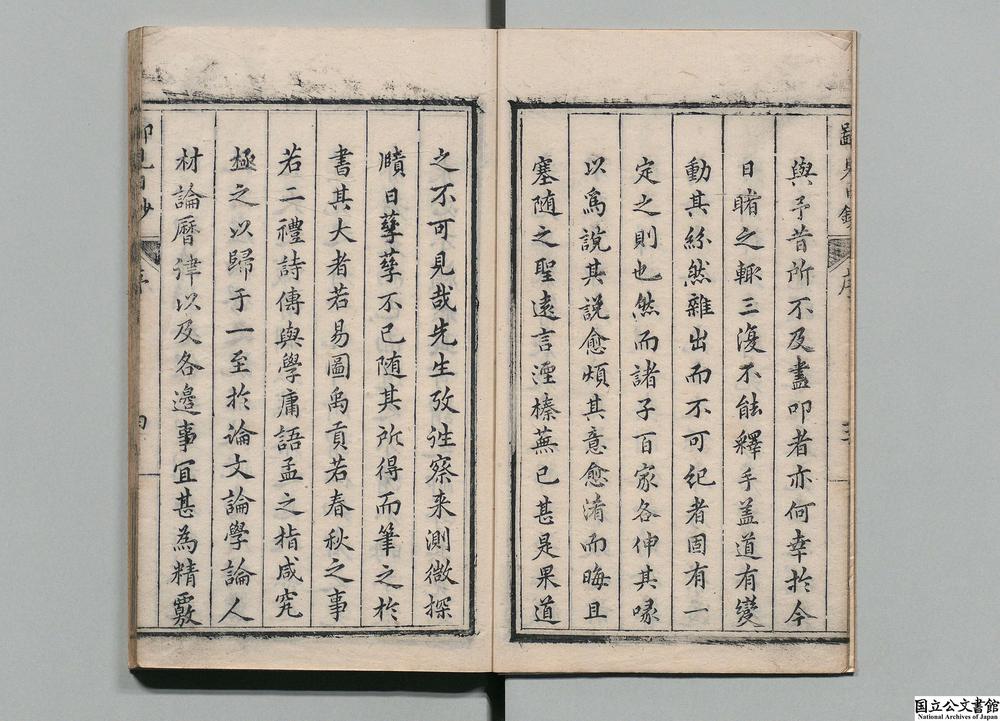 與予昔所不及盡叩者亦何幸於今
日睹之輒三復不能釋手盖道有變
動其紛然雜出而不可紀者固有一
定之則也然而諸子百家各伸其喙
以爲說其說愈煩其意愈淆而晦且
塞随之聖遠言湮榛蕪已甚是果道
之不可見哉先生攷徃察来測微探
賾日孳孳不已随其所得而筆之於
書其大者若易圖禹貢若春秋之事
若二禮詩傳與學庸語孟之指咸究
極之以歸于一至於論文論學論人
材論曆律以及各邉事冝甚為精覈
序
国立公文書館
National Archives of Japan